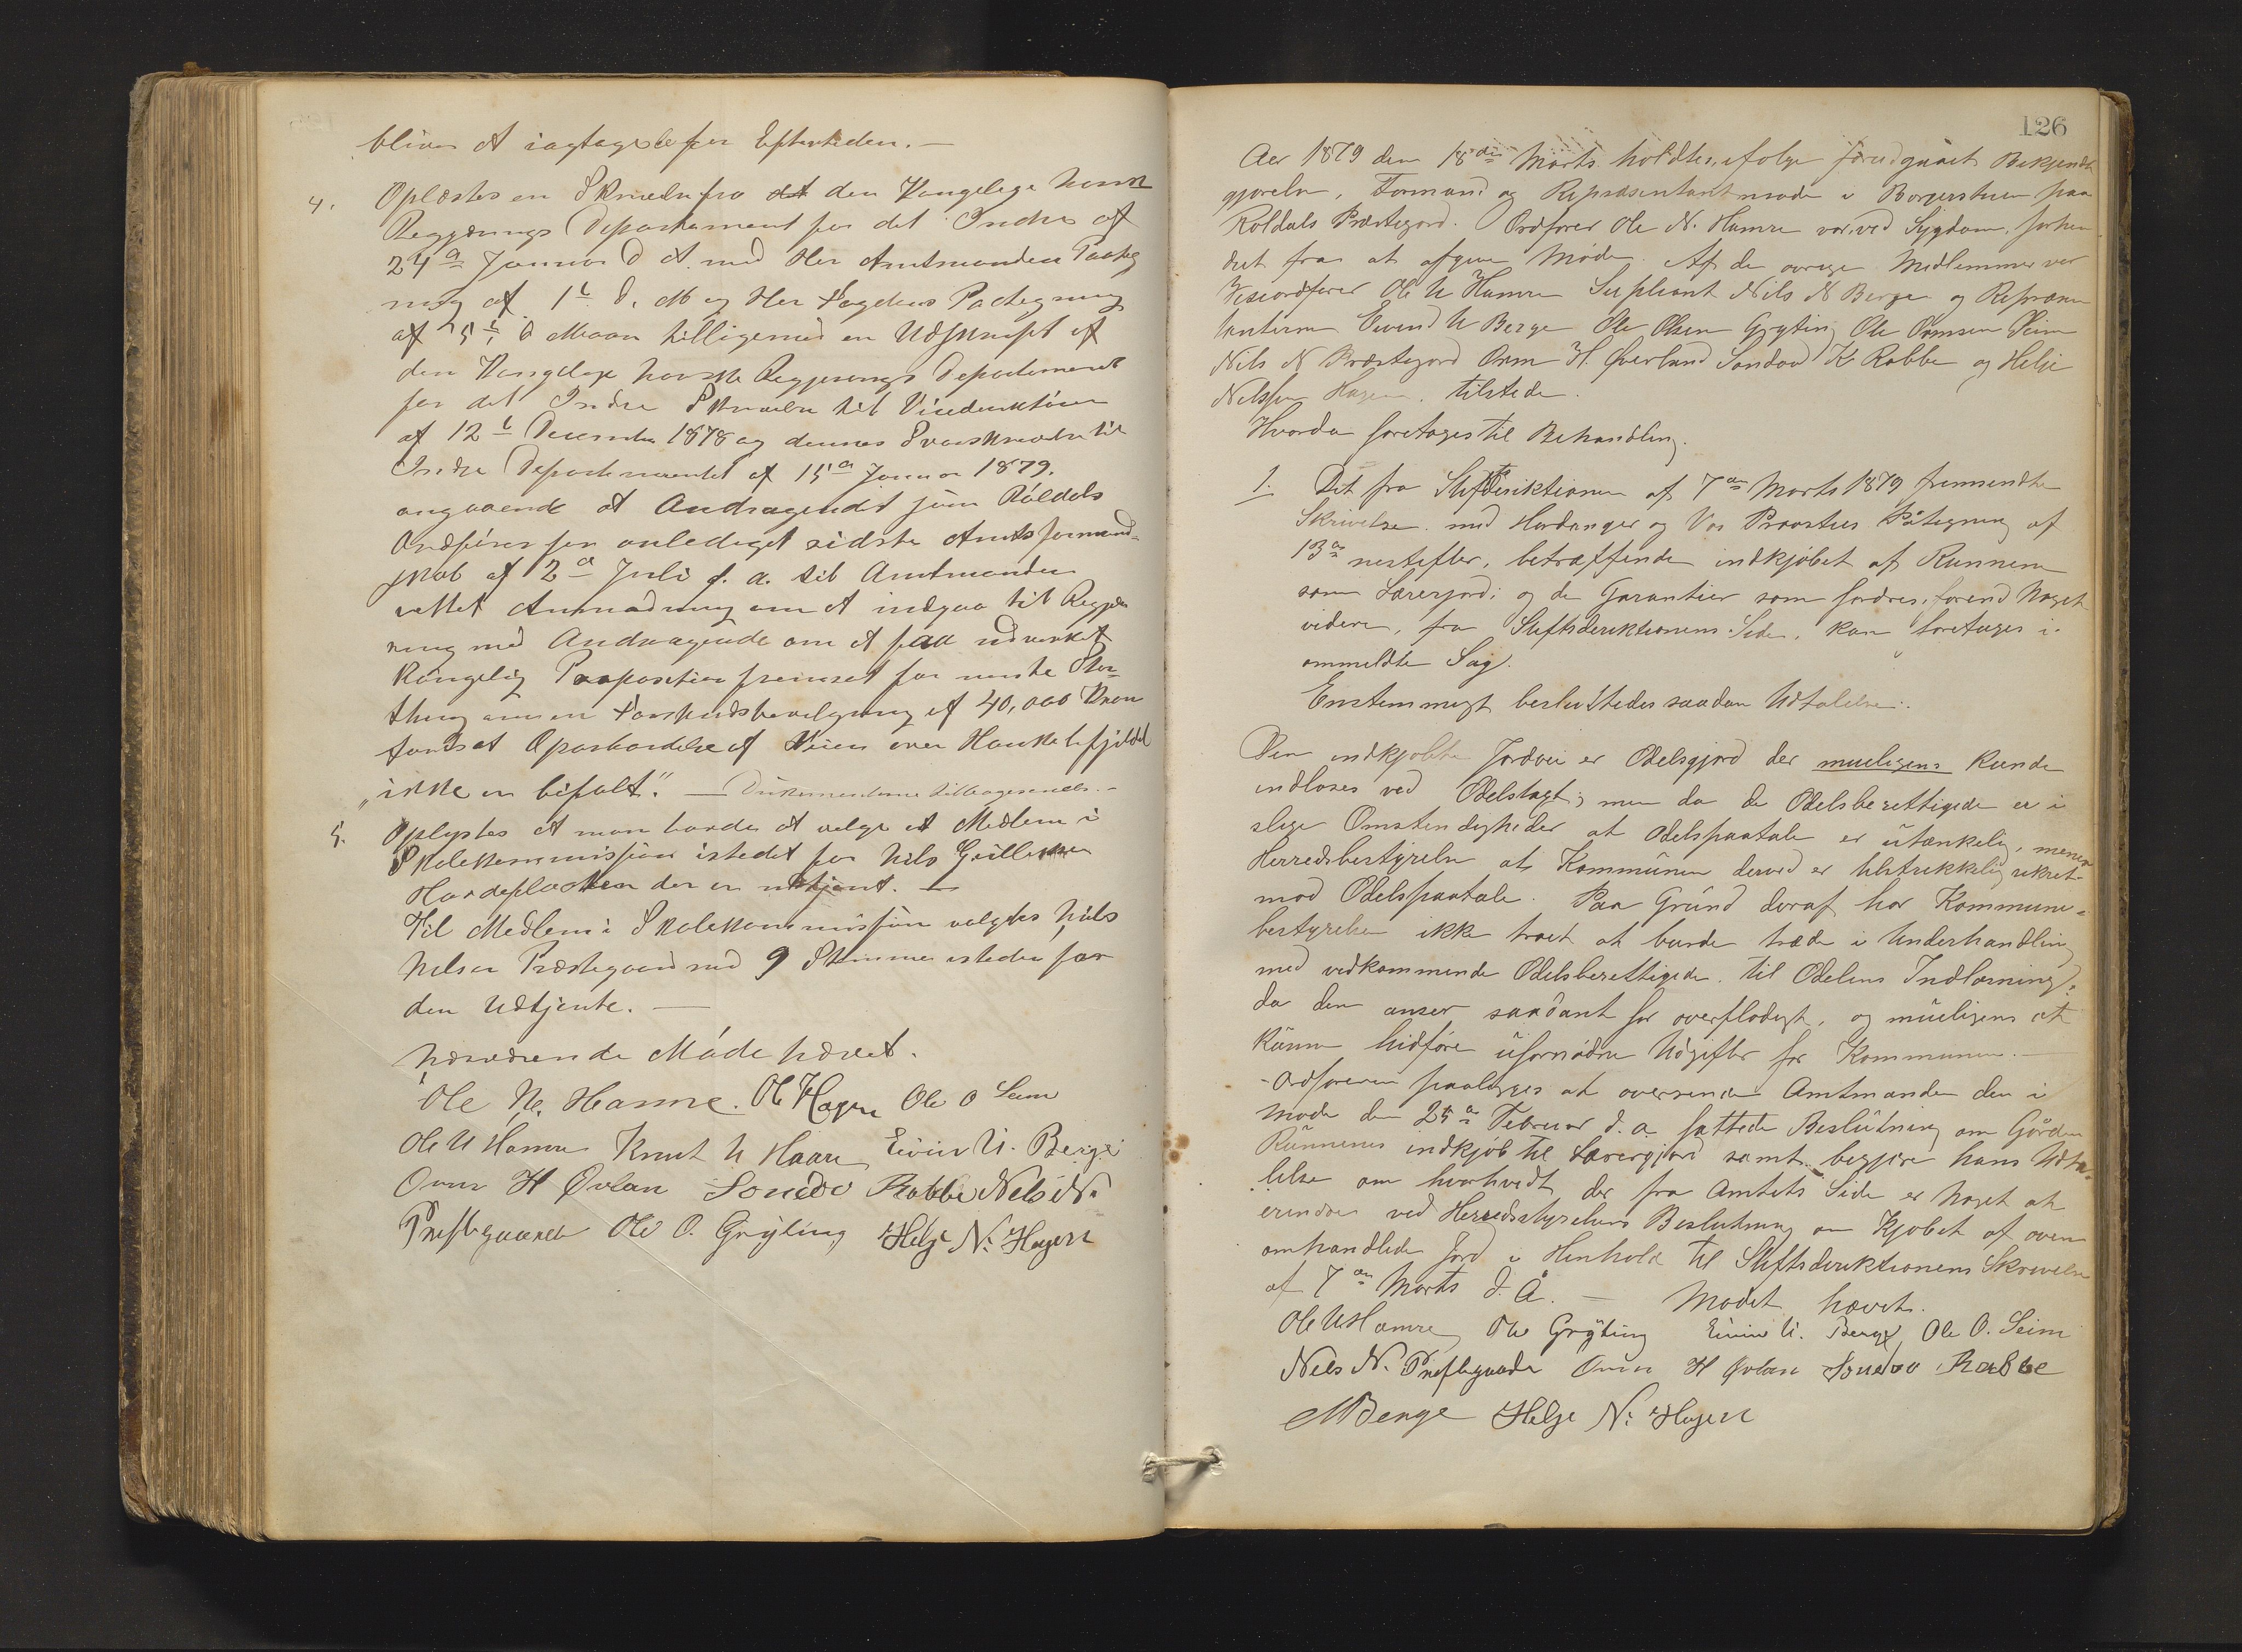 bliver at iagtage for Eftertiden. —
4. Oplæstes en Skrivelse fra det den Kongelige norske
Regjerings Departement for det Indre af
24de Januar d A. med Her Amtmandens Paateg
ning af 1ste d. M og Her Fogdens Pategning
af 5te d Maan tilligemed en Udskrift af
den Kongelige norske Regjerings Departement
for det Indre Skrivelse til Veidirektøren
af 12te December 1878 og dennes Svarskrivelse til
Indre Departementet af 15de Januar 1879.
angaaende at Andragendet som Røldals
Ordfører har anlediget sidste Amtsformand-
skab af 2den Juli f. a. til Amtmanden
rettet Anmodning om at indgaa til Regje
ring med Andragende om at faa udvirket
Kongelig Proposition fremsat for neste Stor-
thing om en Forskudsbevilgning af 40,000 Kroner
til Oparbeidelse af Veien over Haukelifjeldet
„ikke er bifalt." — Dokumenterne tilbagesendes. —
5. Oplystes at man havde at velge et Medlem i
Skolekommissjon istedet for Nils Gullixsen
Hordeplassen der er udtjent. —
Til Medlem i Skolekommissjon valgtes Nils
Nilsen Præstegaard med 9 Stemmer istedet for
den Udtjente. —
Nærværende Møde hævet.
Ole N. Hamre. Ol Hagen Ole O Seim
Ole U Hamre Knut N Haare Eivin U. Berge
Orm H Øvlan Søndov Rabbe Nels N.
Prestegaard Ole O. Grytting Helje N. Hagen
126
Aar 1879 den 18de Marts holdtes, ifølge forudgaaet Bekjendt
gjørelse, Formand og Repræsentantmøde i Borgerstuen paa
Røldals Præstegard. Ordfører Ole N. Hamre var, ved Sygdom, forhen
dret fra at afgive Møde. Af de øvrige Medlemmer var
Viseordfører Ole U Hamre Supliant Nils N Berge og Repræsen
tanterne Eivend U Berge Ole Olsen Gryting Ole Ormsen Seim
Nils N Præstegard Orm H. Øverland Sondov K Rabbe og Helje
Nilssen Hagen. tilstede.
Hvorda foretoges til Behandling.
1. Det fra Stiftsdirektionen af 7de Marts 1879 fremsendte
Skrivelse. med Hardanger og Vos Provsties Påtegning af
13de nestefter, betræffende indkjøbet af Runnene
som Lærerjord; og de Garantier som fordres, forend Noget
videre, fra Stiftsdirektionens Side, kan foretages i
ommeldte Sag.
Enstemmigt besluttedes saadan Udtalelse:
Den indkjøbte Jordvei er Odelsgjord der mueligens kunde
indløses ved Odelstagt; men da de Odelsberettigede er i
slige Omstendigheder at Odelspaatale er utænkelig, mener
Herredsbestyrelse at Kommunen derved er tilstrekkelig sikret
mod Odelspaatale. Paa Grund deraf har Kommune-
bestyrelsen ikke troet at burde træde i Underhandling
med vedkommende Odelsberettigede. til Odelens Indløsning,
da den anser saadant for overflødigt, og mueligens at
kunne hidføre ufornødne Udgifter for Kommunen. —
- Ordføreren paalægges at oversende Amtmanden den i
Møde den 25de Februar d. a. fattede Beslutning om Gården
Runnenes indkjøb til Lærergjord samt begjære hans Udta-
lelse om hvorhvidt der fra Amtets Side er Noget at
erindre ved Herredsstyrelsens Beslutning om Kjøbet af oven
omhandlede Jord i Henhold til Stiftsdirektionens Skrivelse
af 7de Marts d. Å. — Mødet hævet.
Ole U Hamre Ole Gryting Eivin U. Berge Ole O. Seim
Nels N. Prestegaard Orm H Øvlan Søndov Rabbe
N Berge Helje N. Hagen